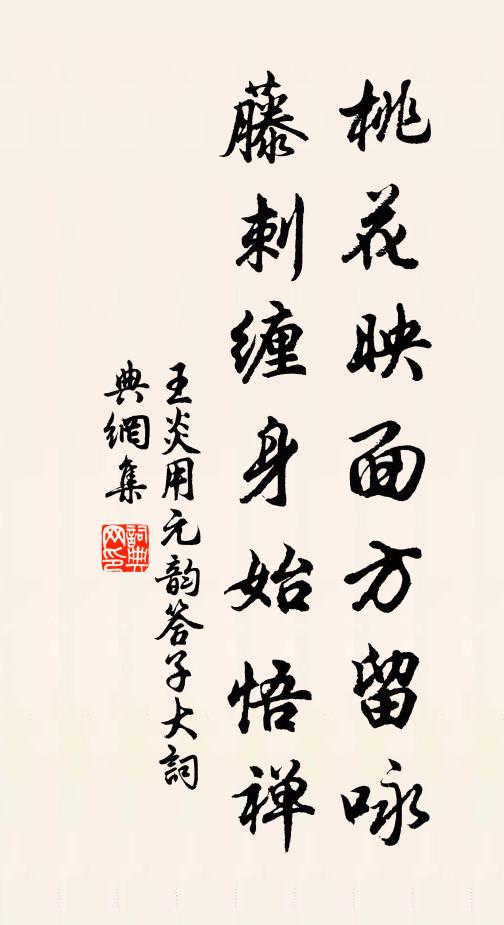 桃花映面方留咏
藤刺缠身始悟禅
王炎用元韵答子大词
典網集
詞典網印